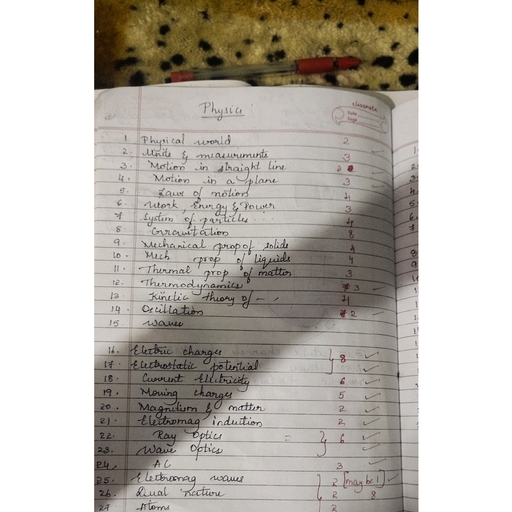 Physics:
classmate
Date
Page
1. Physical world 2
2. Units & measurements 3
3. Motion in straight line 2
4. Motion in a plane 3
5. Laws of motion 4
6. Work, Energy & Power 3
7 System of particles ... 4
8 Gravitation 8
9. Mechanical prop of solids 4
10. Mech prop of liquids 4
11. Thermal prop of matter 3
12. Thermodynamics 3
13 Kinetic theory of - - 4
14. Oscillation 2
15 waves
16. Electric charges
17. Electrostatic potential } 8
18. Current Electricity 6
19. Moving charges 5
20. Magnetism & matter 2
21. Electromag induction 2
22. Ray Optics =
23. Wave Optics } 6
24. AC 3
25. Electromag waves 2 [may be 1]
26. Dual nature 2 8
27 Atoms 2